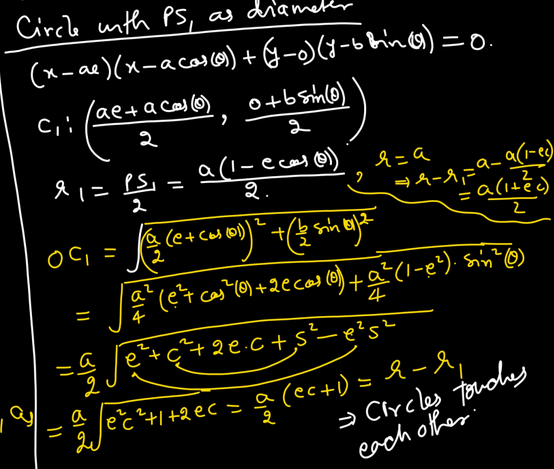 Circle with PS₁ as diameter
(x-ae)(x-a cos(θ)) + (y-0)(y-b sin(θ)) = 0.
C₁: ( (ae+a cos(θ))/2 , (0+b sin(θ))/2 )
r₁ = PS₁/2 = a(1-e cos(θ))/2. , r = a
⇒ r-r₁ = a - a(1-ec)/2
= a(1+ec)/2
OC₁ = √( (a/2 (e+cos(θ)))² + (b/2 sin(θ))² )
= √( a²/4 (e²+cos²(θ)+2e cos(θ)) + a²/4 (1-e²)·sin²(θ) )
= a/2 √( e²+c²+2e.c+s²-e²s² )
= a/2 √( e²c²+1+2ec ) = a/2 (ec+1) = r - r₁
⇒ Circles touches
each other.